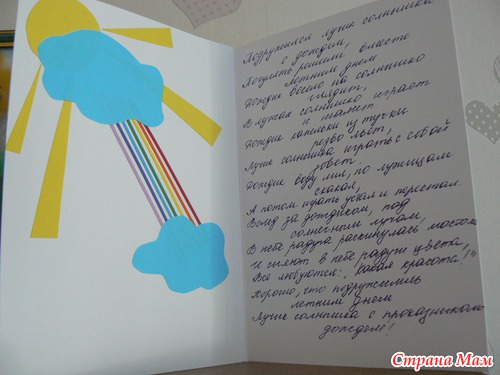 Подружился лучик солнышка
с дождем,
Поиграть решили вместе
летним днем
Дождик весело на солнышко
глядит,
В лучах солнышко играет
и манит
Дождик капельки из тучки
резво льёт,
Лучик солнышка играть с собой
зовет.
Дождик воду лил, по лужицам
скакал,
А потом играть устал и перестал.
Вслед за дождиком, под
солнечным лучом,
В небе радуга раскинулась мостом
И сияют в небе радуги цвета,
Все любуются: "Какая красота!"
Хорошо, что подружились
летним днем
Лучик солнышка с проказником
дождем!
Страна Мам